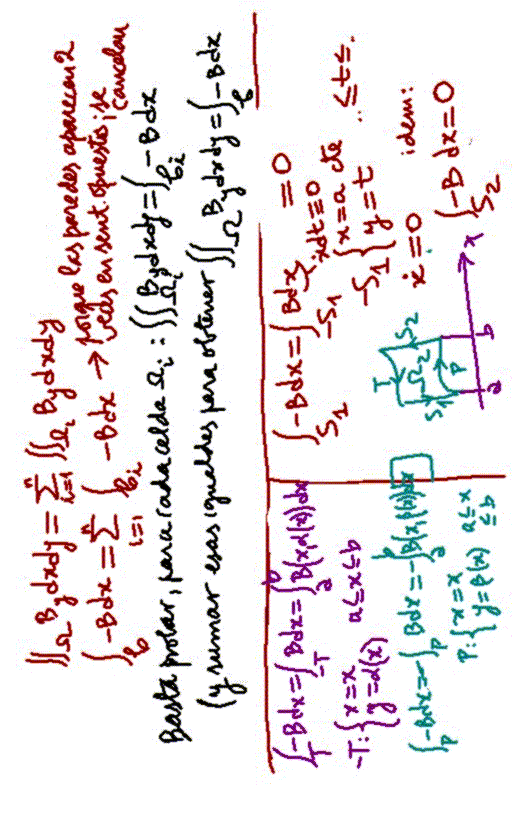 ∬_Ω B_y dxdy = Σ_{i=1}^n ∬_{Ω_i} B_y dxdy
∫_𝒞 -Bdx = Σ_{i=1}^n ∫_{𝒞_i} -Bdx → porque las paredes aparecen 2
veces en sent. opuestos; se
cancelan
Basta probar, para cada celda Ω_i : ∬_{Ω_i} B_y dxdy = ∫_{𝒞_i} -Bdx
(y sumar esas igualdades para obtener ∬_Ω B_y dxdy = ∫_𝒞 -Bdx
∫_T -Bdx = ∫_{-T} Bdx = ∫_a^b B(x,α(x))dx
-T: { x=x
y=α(x)
a≤x≤b
∫_P -Bdx = -∫_P Bdx = -∫_a^b B(x,β(x))dx
P: { x=x
y=β(x)
a≤x
≤b
∫_{S_1} -Bdx = ∫_{-S_1} Bdx = 0
ẋdt=0
-S_1 { x=a cte
y=t
.. ≤t≤..
ẋ=0
idem:
∫_{S_2} -Bdx=0
T
S_1
Ω_i
S_2
P
a
b
x